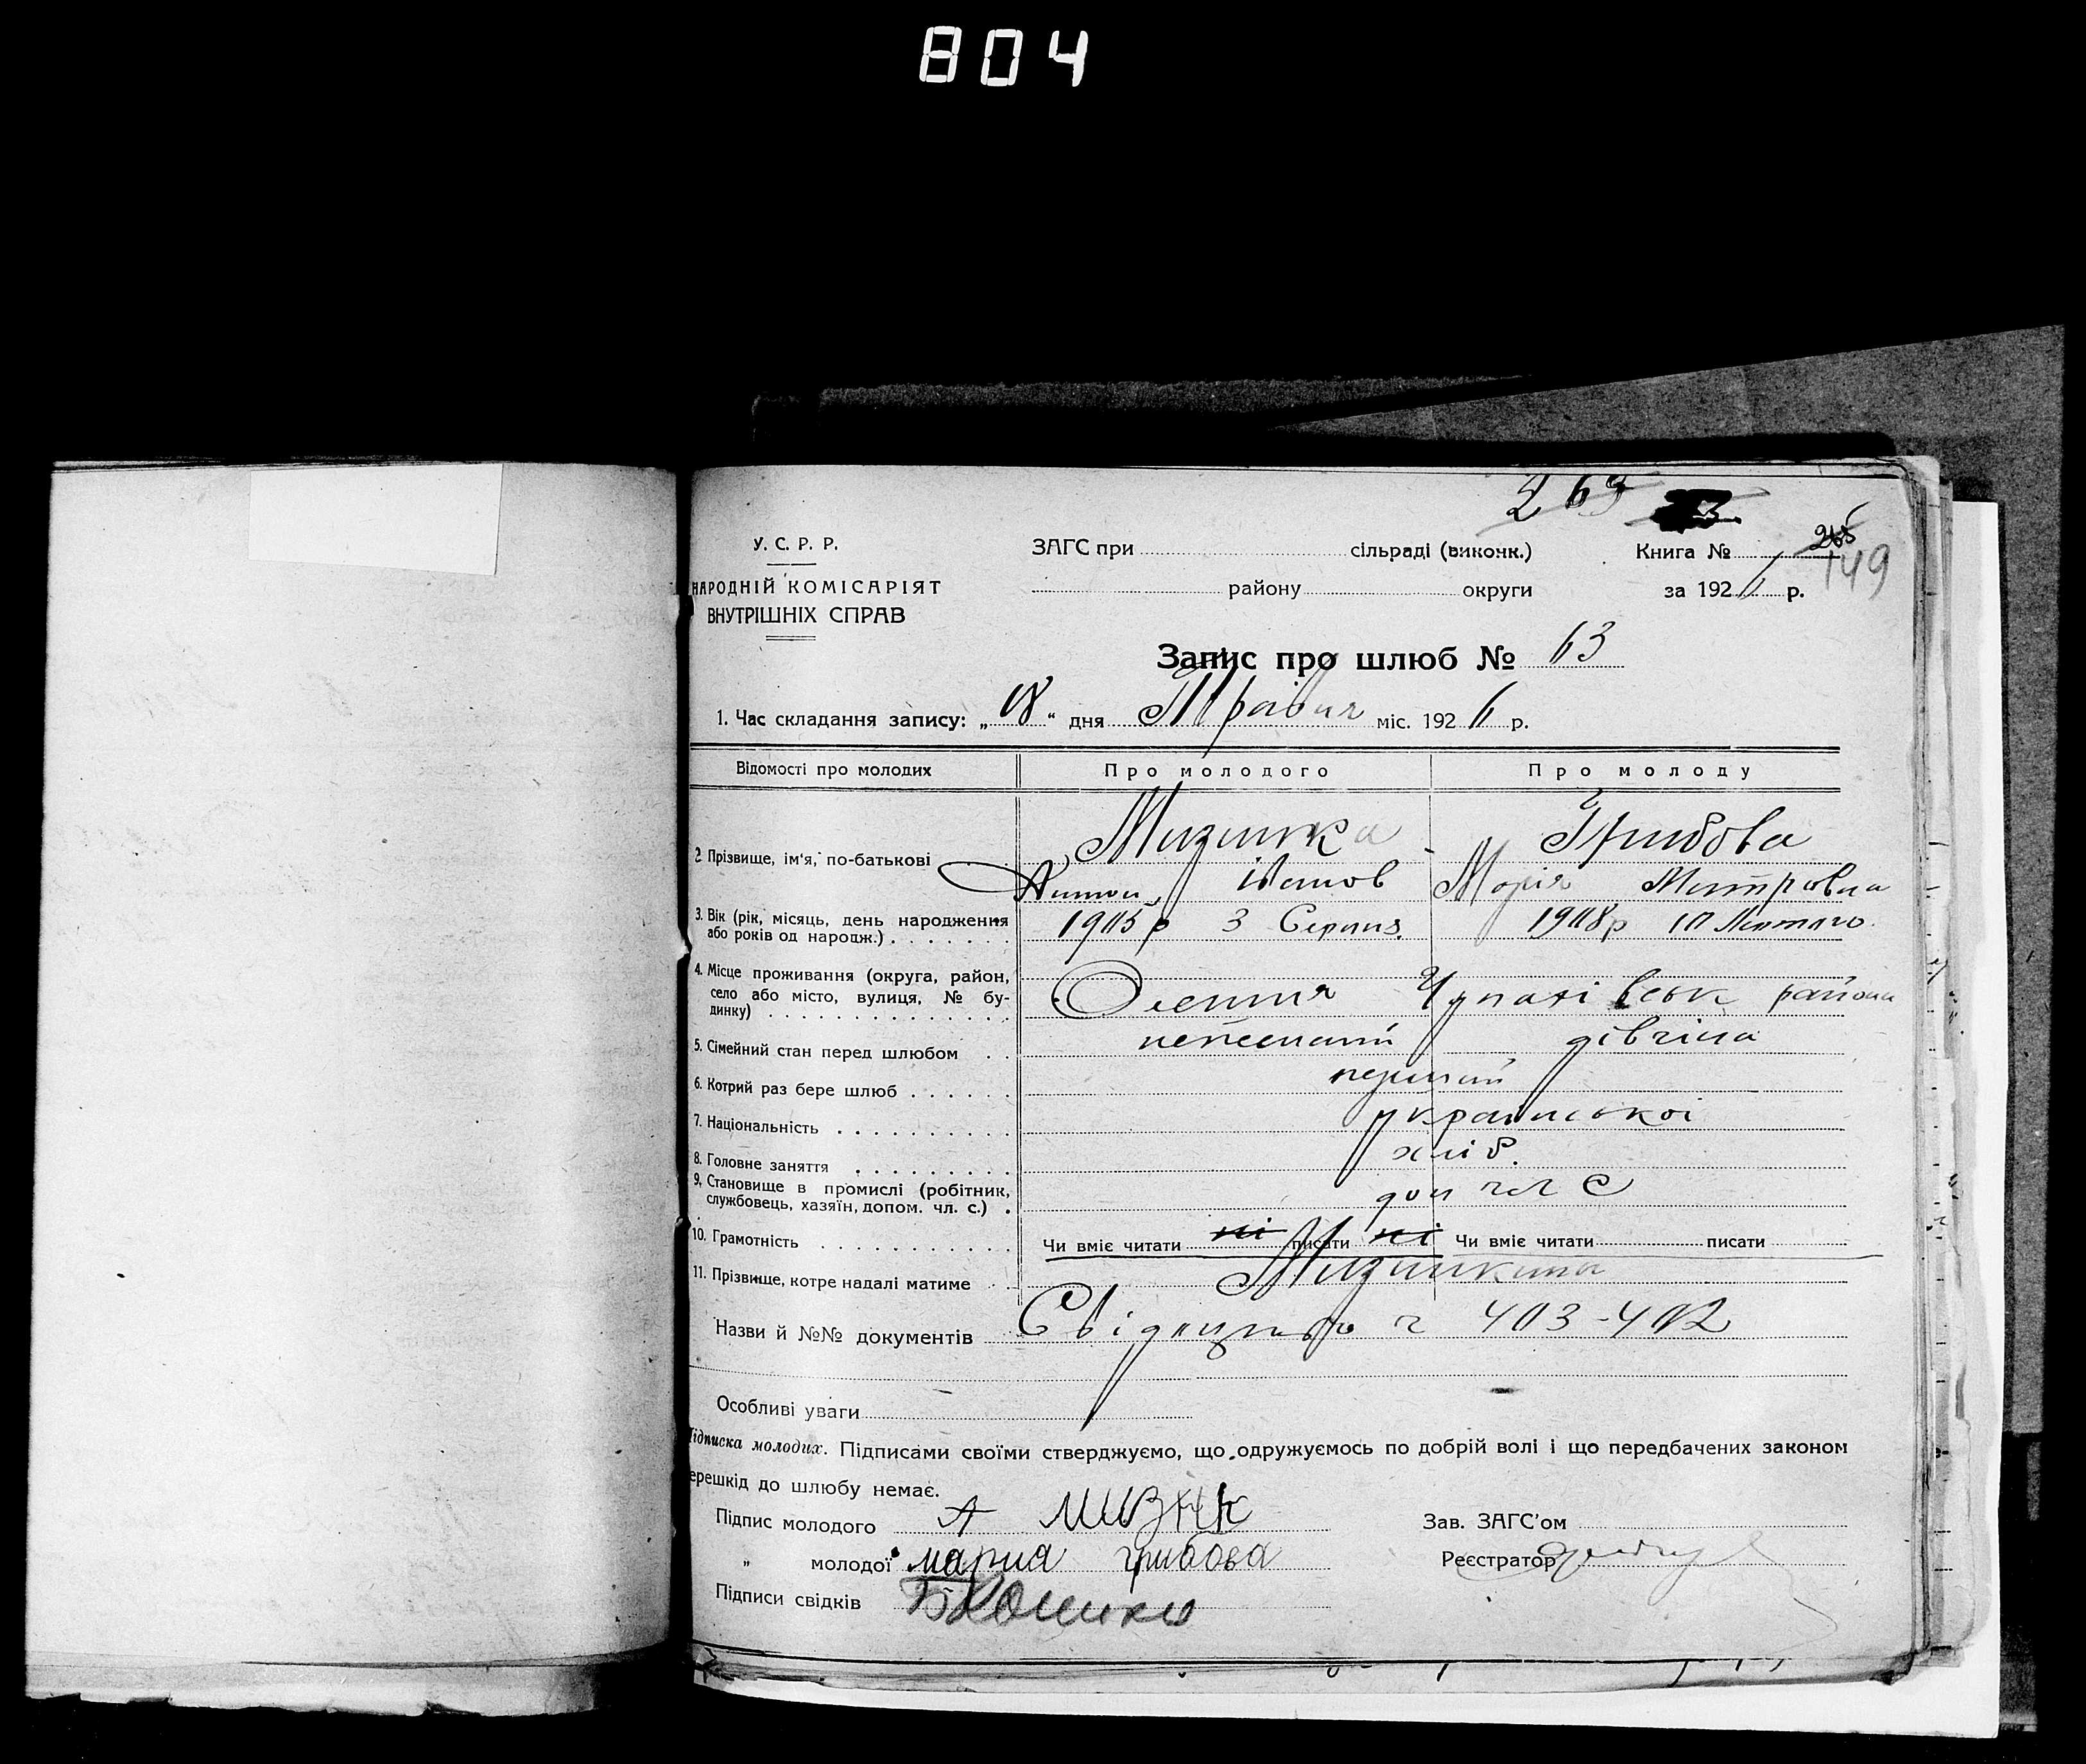 804
263
У. С. Р. Р.
ЗАГС при сільраді (виконк.) Книга №
149
НАРОДНІЙ КОМІСАРІЯТ
ВНУТРІШНІХ СПРАВ
району округи за 192 р.
Запис про шлюб № 63
1. Час складання запису: „ “ дня Травня міс. 1926 р.
Відомості про молодих Про молодого Про молоду
2. Прізвище, ім'я, по-батькові Мизинка Грибова
Антон Іванов Марія Митровна
3. Вік (рік, місяць, день народження
або років од народж.) 1905 р 3 Серпня 1908 р 10 Лютого
4. Місце проживання (округа, район,
село або місто, вулиця, № бу-
динку) району
5. Сімейний стан перед шлюбом нежонатий дівчина
6. Котрий раз бере шлюб перший
7. Національність української
8. Головне заняття хліб.
9. Становище в промислі (робітник,
службовець, хазяїн, допом. чл. с.) доп чл С
10. Грамотність Чи вміє читати ні писати ні Чи вміє читати писати
11. Прізвище, котре надалі матиме
Назви й №№ документів ч 403-402
Особливі уваги
Підписка молодих. Підписами своїми стверджуємо, що одружуємось по добрій волі і що передбачених законом
ерешкід до шлюбу немає.
Підпис молодого А МИЗНК Зав. ЗАГС'ом
„ молодої мариа грибова Реєстратор
Підписи свідків